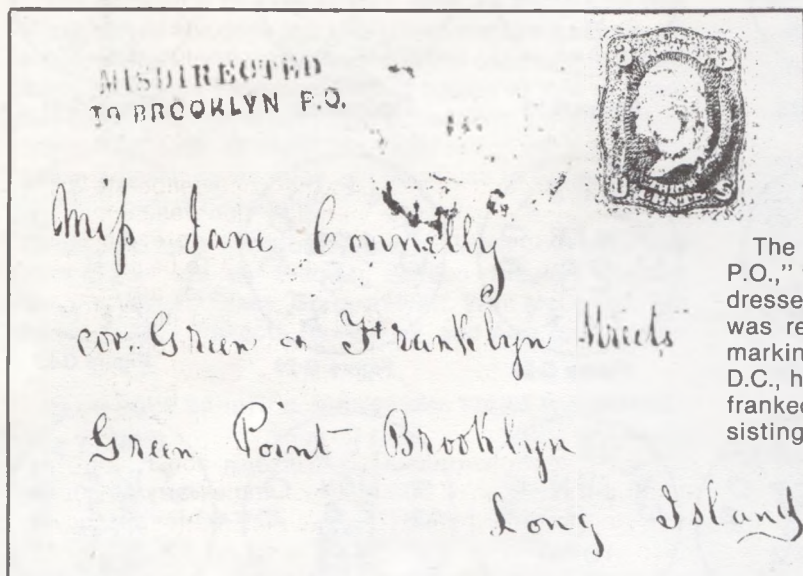 MISDIRECTED
TO BROOKLYN P.O.
3 3
U S
Miss Jane Connelly
cor. Green & Franklyn Streets
Green Point Brooklyn
Long Island
The
P.O.,"
dresse
was re
markin
D.C., h
franked
sisting